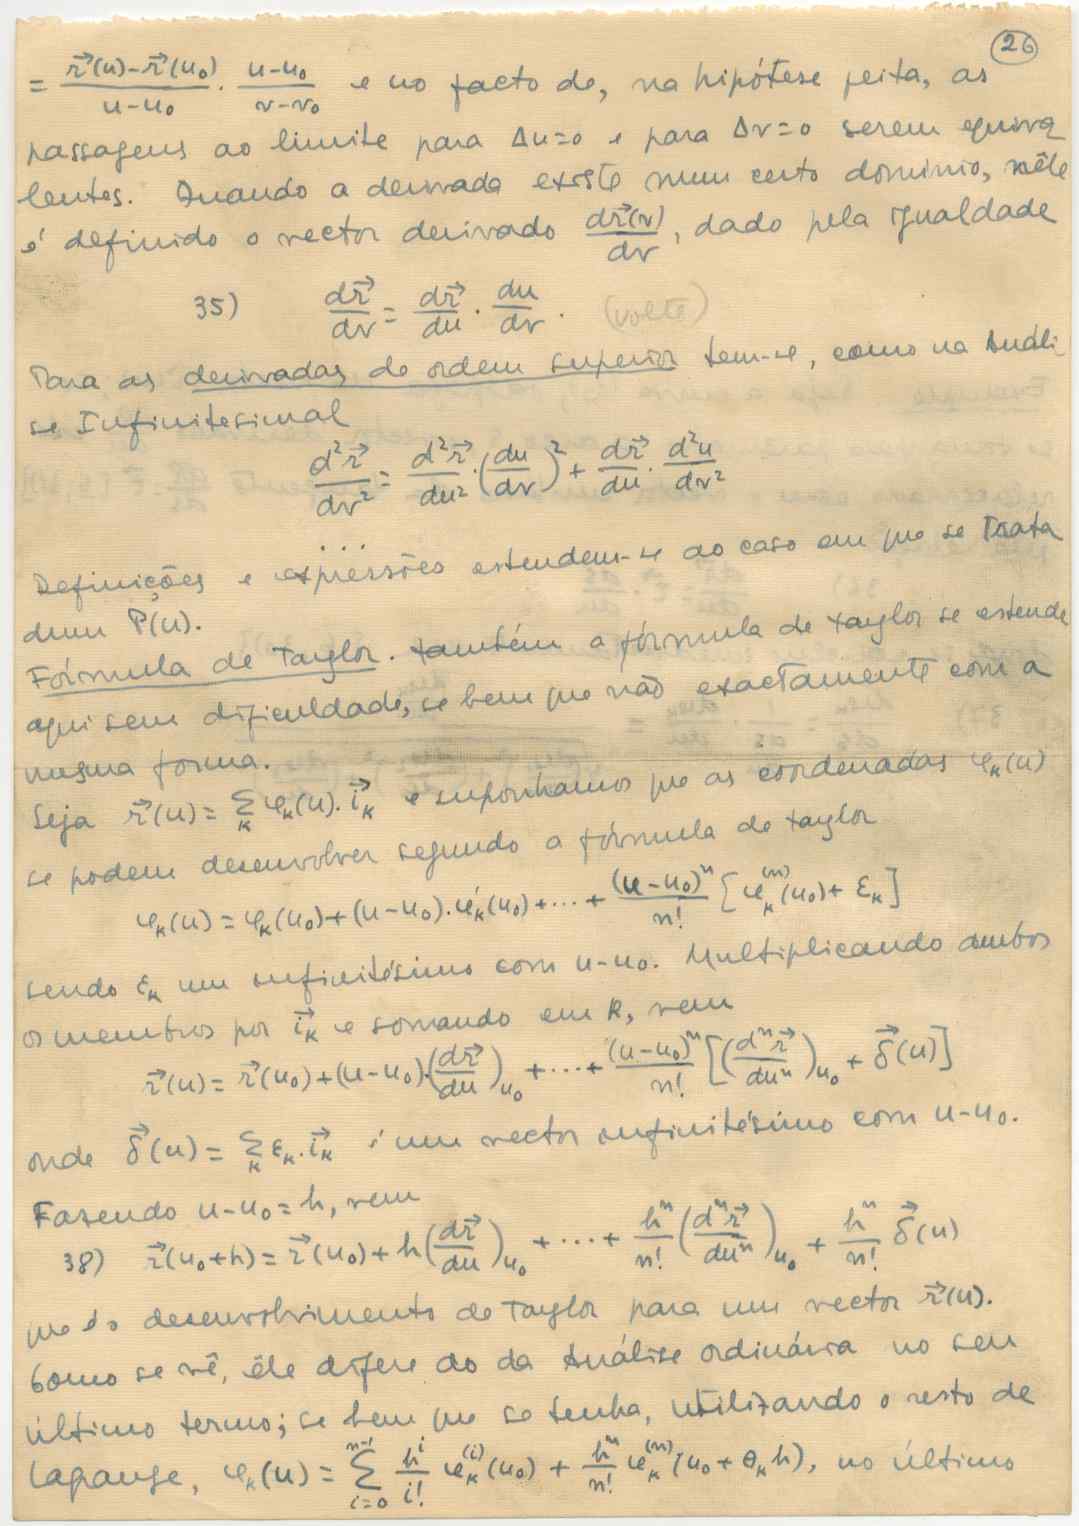 26
= \frac{\vec{r}(u)-\vec{r}(u_0)}{u-u_0} \cdot \frac{u-u_0}{v-v_0} e no facto de, na hipótese feita, as
passagens ao limite para Δu=0 e para Δv=0 serem equiva
lentes. Quando a derivada existe num certo domínio, nêle
é definido o vector derivado \frac{d\vec{r}(v)}{dv}, dado pela igualdade
35) \frac{d\vec{r}}{dv} = \frac{d\vec{r}}{du} \cdot \frac{du}{dv}. (volte)
Para as derivadas de ordem superior tem-se, como na Análi
se Infinitesimal
\frac{d^2\vec{r}}{dv^2} = \frac{d^2\vec{r}}{du^2} \cdot \left(\frac{du}{dv}\right)^2 + \frac{d\vec{r}}{du} \cdot \frac{d^2u}{dv^2}
...
Definições e expressões estendem-se ao caso em que se trata
dum P(u).
Fórmula de Taylor. Também a fórmula de Taylor se estende
aqui sem dificuldade, se bem que não exactamente com a
mesma forma.
Seja \vec{r}(u) = \sum_k φ_k(u) \cdot \vec{i}_k e suponhamos que as coordenadas φ_k(u)
se podem desenvolver segundo a fórmula de Taylor
φ_k(u) = φ_k(u_0) + (u-u_0) \cdot φ'_k(u_0) + ... + \frac{(u-u_0)^n}{n!} [φ_k^{(n)}(u_0) + ε_k]
sendo ε_k um infinitésimo com u-u_0. Multiplicando ambos
os membros por \vec{i}_k e somando em k, vem
\vec{r}(u) = \vec{r}(u_0) + (u-u_0) \cdot \left(\frac{d\vec{r}}{du}\right)_{u_0} + ... + \frac{(u-u_0)^n}{n!} \left[\left(\frac{d^n\vec{r}}{du^n}\right)_{u_0} + \vec{δ}(u)\right]
onde \vec{δ}(u) = \sum_k ε_k \cdot \vec{i}_k é um vector infinitésimo com u-u_0.
Fazendo u-u_0 = h, vem
38) \vec{r}(u_0+h) = \vec{r}(u_0) + h\left(\frac{d\vec{r}}{du}\right)_{u_0} + ... + \frac{h^n}{n!}\left(\frac{d^n\vec{r}}{du^n}\right)_{u_0} + \frac{h^n}{n!} \vec{δ}(u)
que é o desenvolvimento de Taylor para um vector \vec{r}(u).
Como se vê, êle difere do da Análise ordinária no seu
último termo; se bem que se tenha, utilizando o resto de
Lagrange, φ_k(u) = \sum_{i=0}^{n-1} \frac{h^i}{i!} φ_k^{(i)}(u_0) + \frac{h^n}{n!} φ_k^{(n)}(u_0 + θ_k h), no último